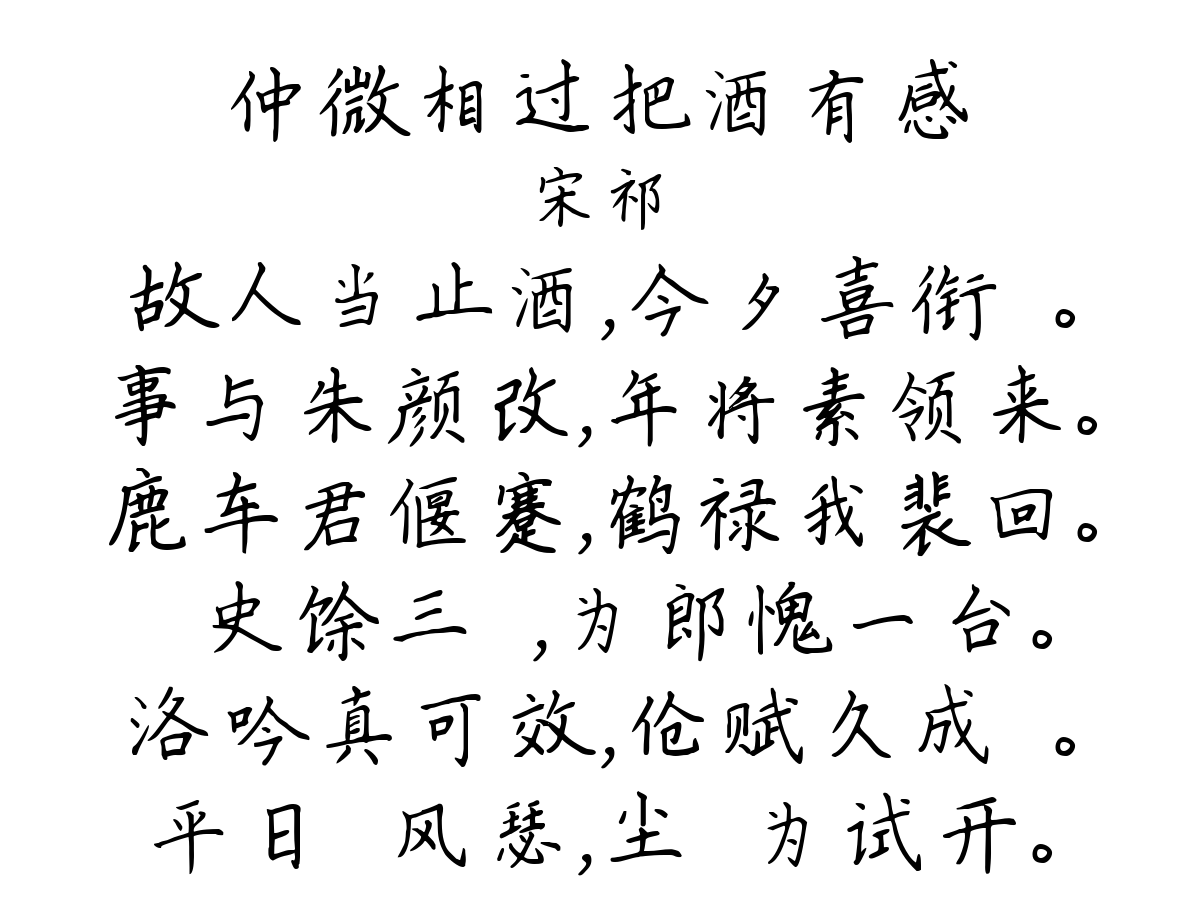 仲微相过把酒有感
宋祁
故人当止酒,今夕喜衔 。
事与朱颜改,年将素领来。
鹿车君偃蹇,鹤禄我裴回。
史馀三 ,为郎愧一台。
洛吟真可效,伧赋久成 。
平日 风瑟,尘 为试开。